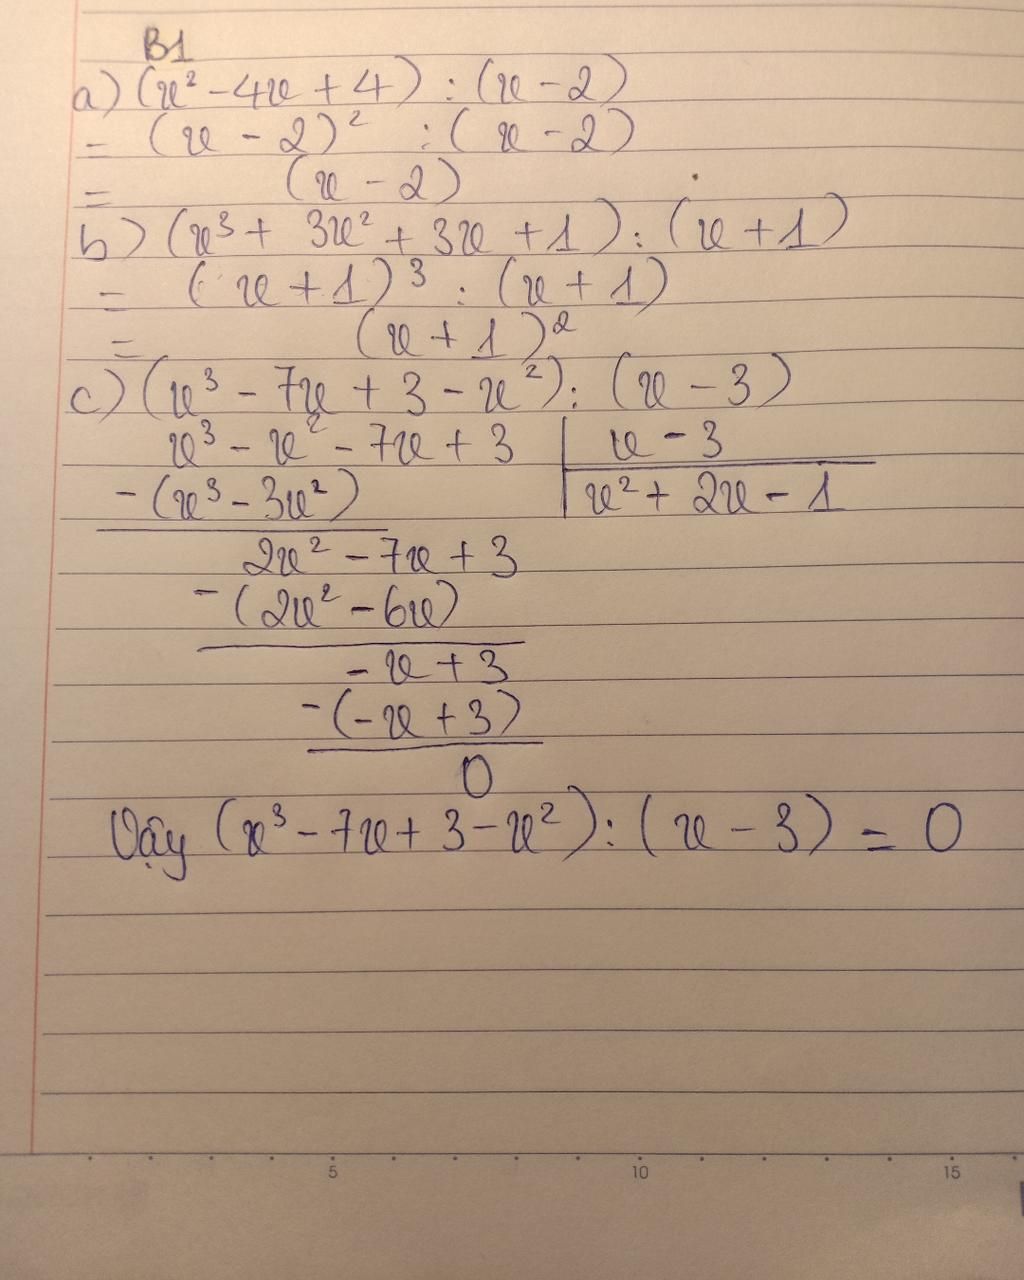 B1
a) (x² - 4x + 4) : (x - 2)
= (x - 2)² : (x - 2)
= (x - 2)
b) (x³ + 3x² + 3x + 1) : (x + 1)
= (x + 1)³ : (x + 1)
= (x + 1)²
c) (x³ - 7x + 3 - x²) : (x - 3)
x³ - x² - 7x + 3 | x - 3
- (x³ - 3x²) | x² + 2x - 1
2x² - 7x + 3
- (2x² - 6x)
- x + 3
- (- x + 3)
0
Vậy (x³ - 7x + 3 - x²) : (x - 3) = 0
5 10 15